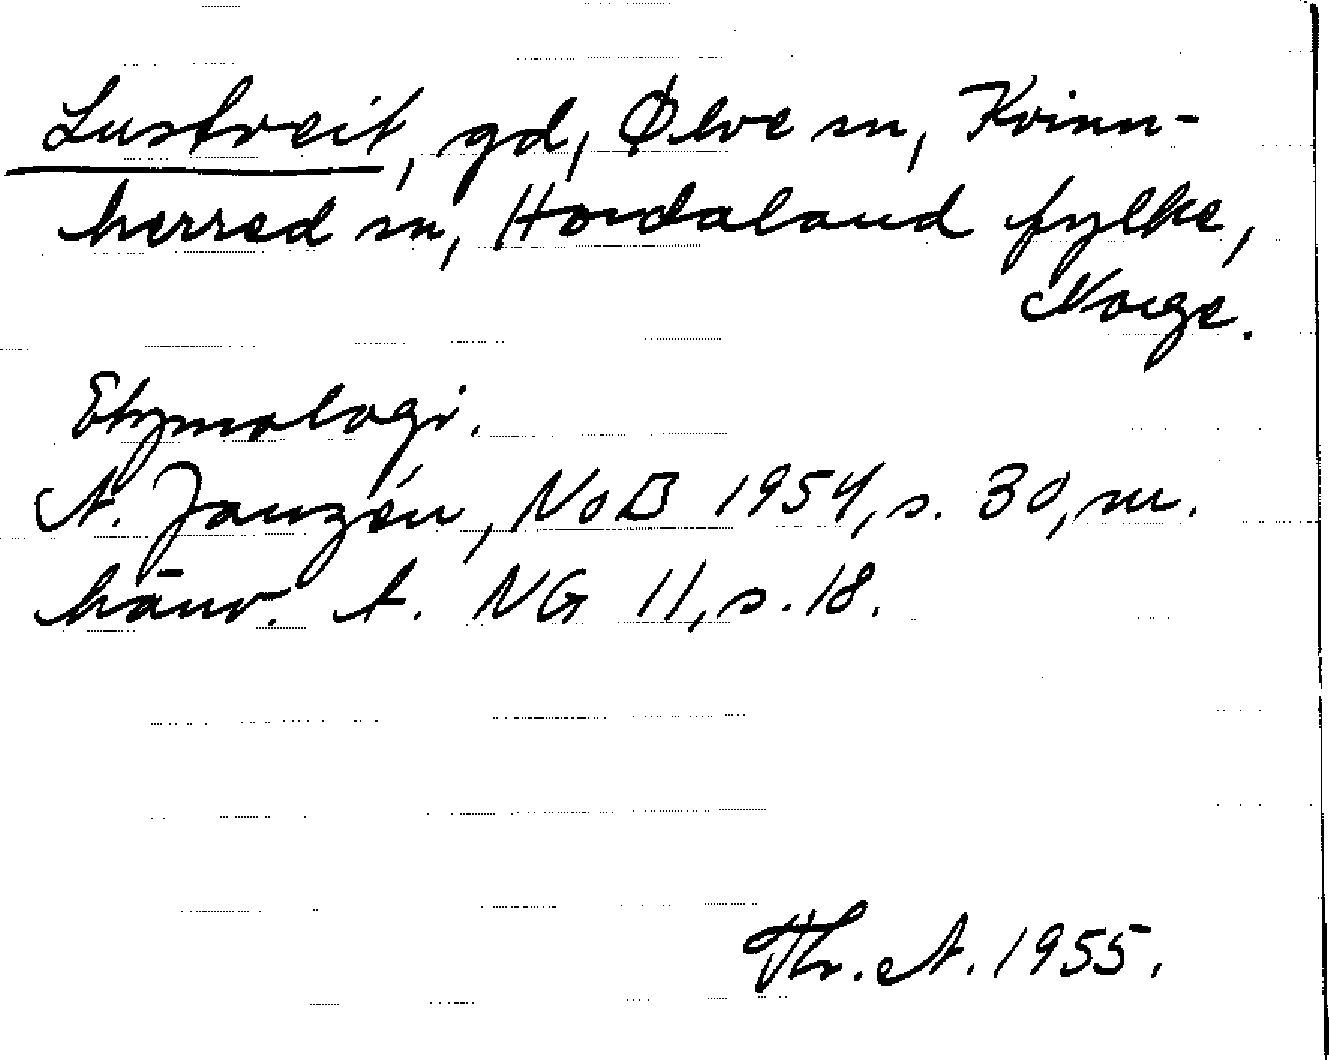 Lustveit, gd, Ølve sn, Kvinn-
herred sn, Hordaland fylke,
Norge.
Etymologi.
A. Janzén, NoB 1954, s. 30, m.
hänv. t. NG 11, s. 18.
Th. A. 1955.